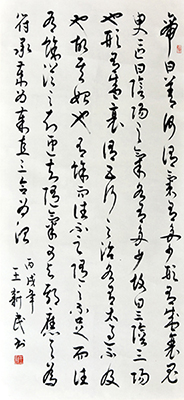 帝曰善何謂氣有多少形有盛衰鬼
臾區曰陰陽之氣各有多少故曰三陰三陽
也形有盛衰謂五行之治各有太過不及
也故其始也有餘而往不足隨之不足而往
有餘從之知迎知隨氣可與期應天為天
符承歲為歲直三合為治
丙戌年
王新民書